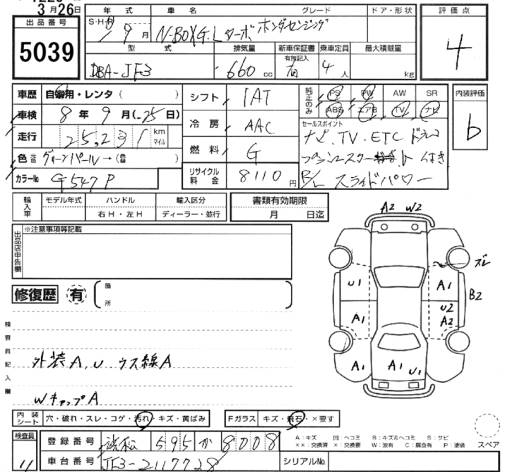 3月26日
出品番号
5039
年式 車名 グレード ドア・形状 評価点
S・H
9月 N-BOX G・L ターボ ホンダセンシング
4
型式 排気量 新車保証書 乗車定員 最大積載量
有無記入
DBA-JF3 660 cc 有 4人 kg
車歴 自家用・レンタ( )
車検 8年9月(25日)
走行 25,231 km マイル
色
カラーNo G547P
シフト IAT
冷房 AAC
燃料 G
リサイクル料金 8110円
純正のみ PS PW AW SR
ABS エアB TV ナビ
セールスポイント
ナビ.TV.ETC
スライドパワー
内装評価
b
輸入車 モデル年式 ハンドル 輸入区分
年 右H・左H ディーラー・並行
書類有効期限
月 日迄
出品店申告欄
※注意事項等記載
修復歴 有
箇所
検査員記入欄
外装A,U ウス線A
WキャップA
A2 W2
ズレ
U1 A1
B2
U2
A2
A1 A1
A1 U1
内装シート 穴・破れ・スレ・コゲ・汚れ・キズ・黄ばみ
Fガラス キズ・飛石・×要す
A:キズ U:ヘコミ B:キズ&ヘコミ S:サビ
××:交換済 ×:要交換 W:波有 C:腐食有 P:塗装
スペア
検査員
11
登録番号 浜松 595 か 8008
車台番号 JF3-2117728
シリアルNo.